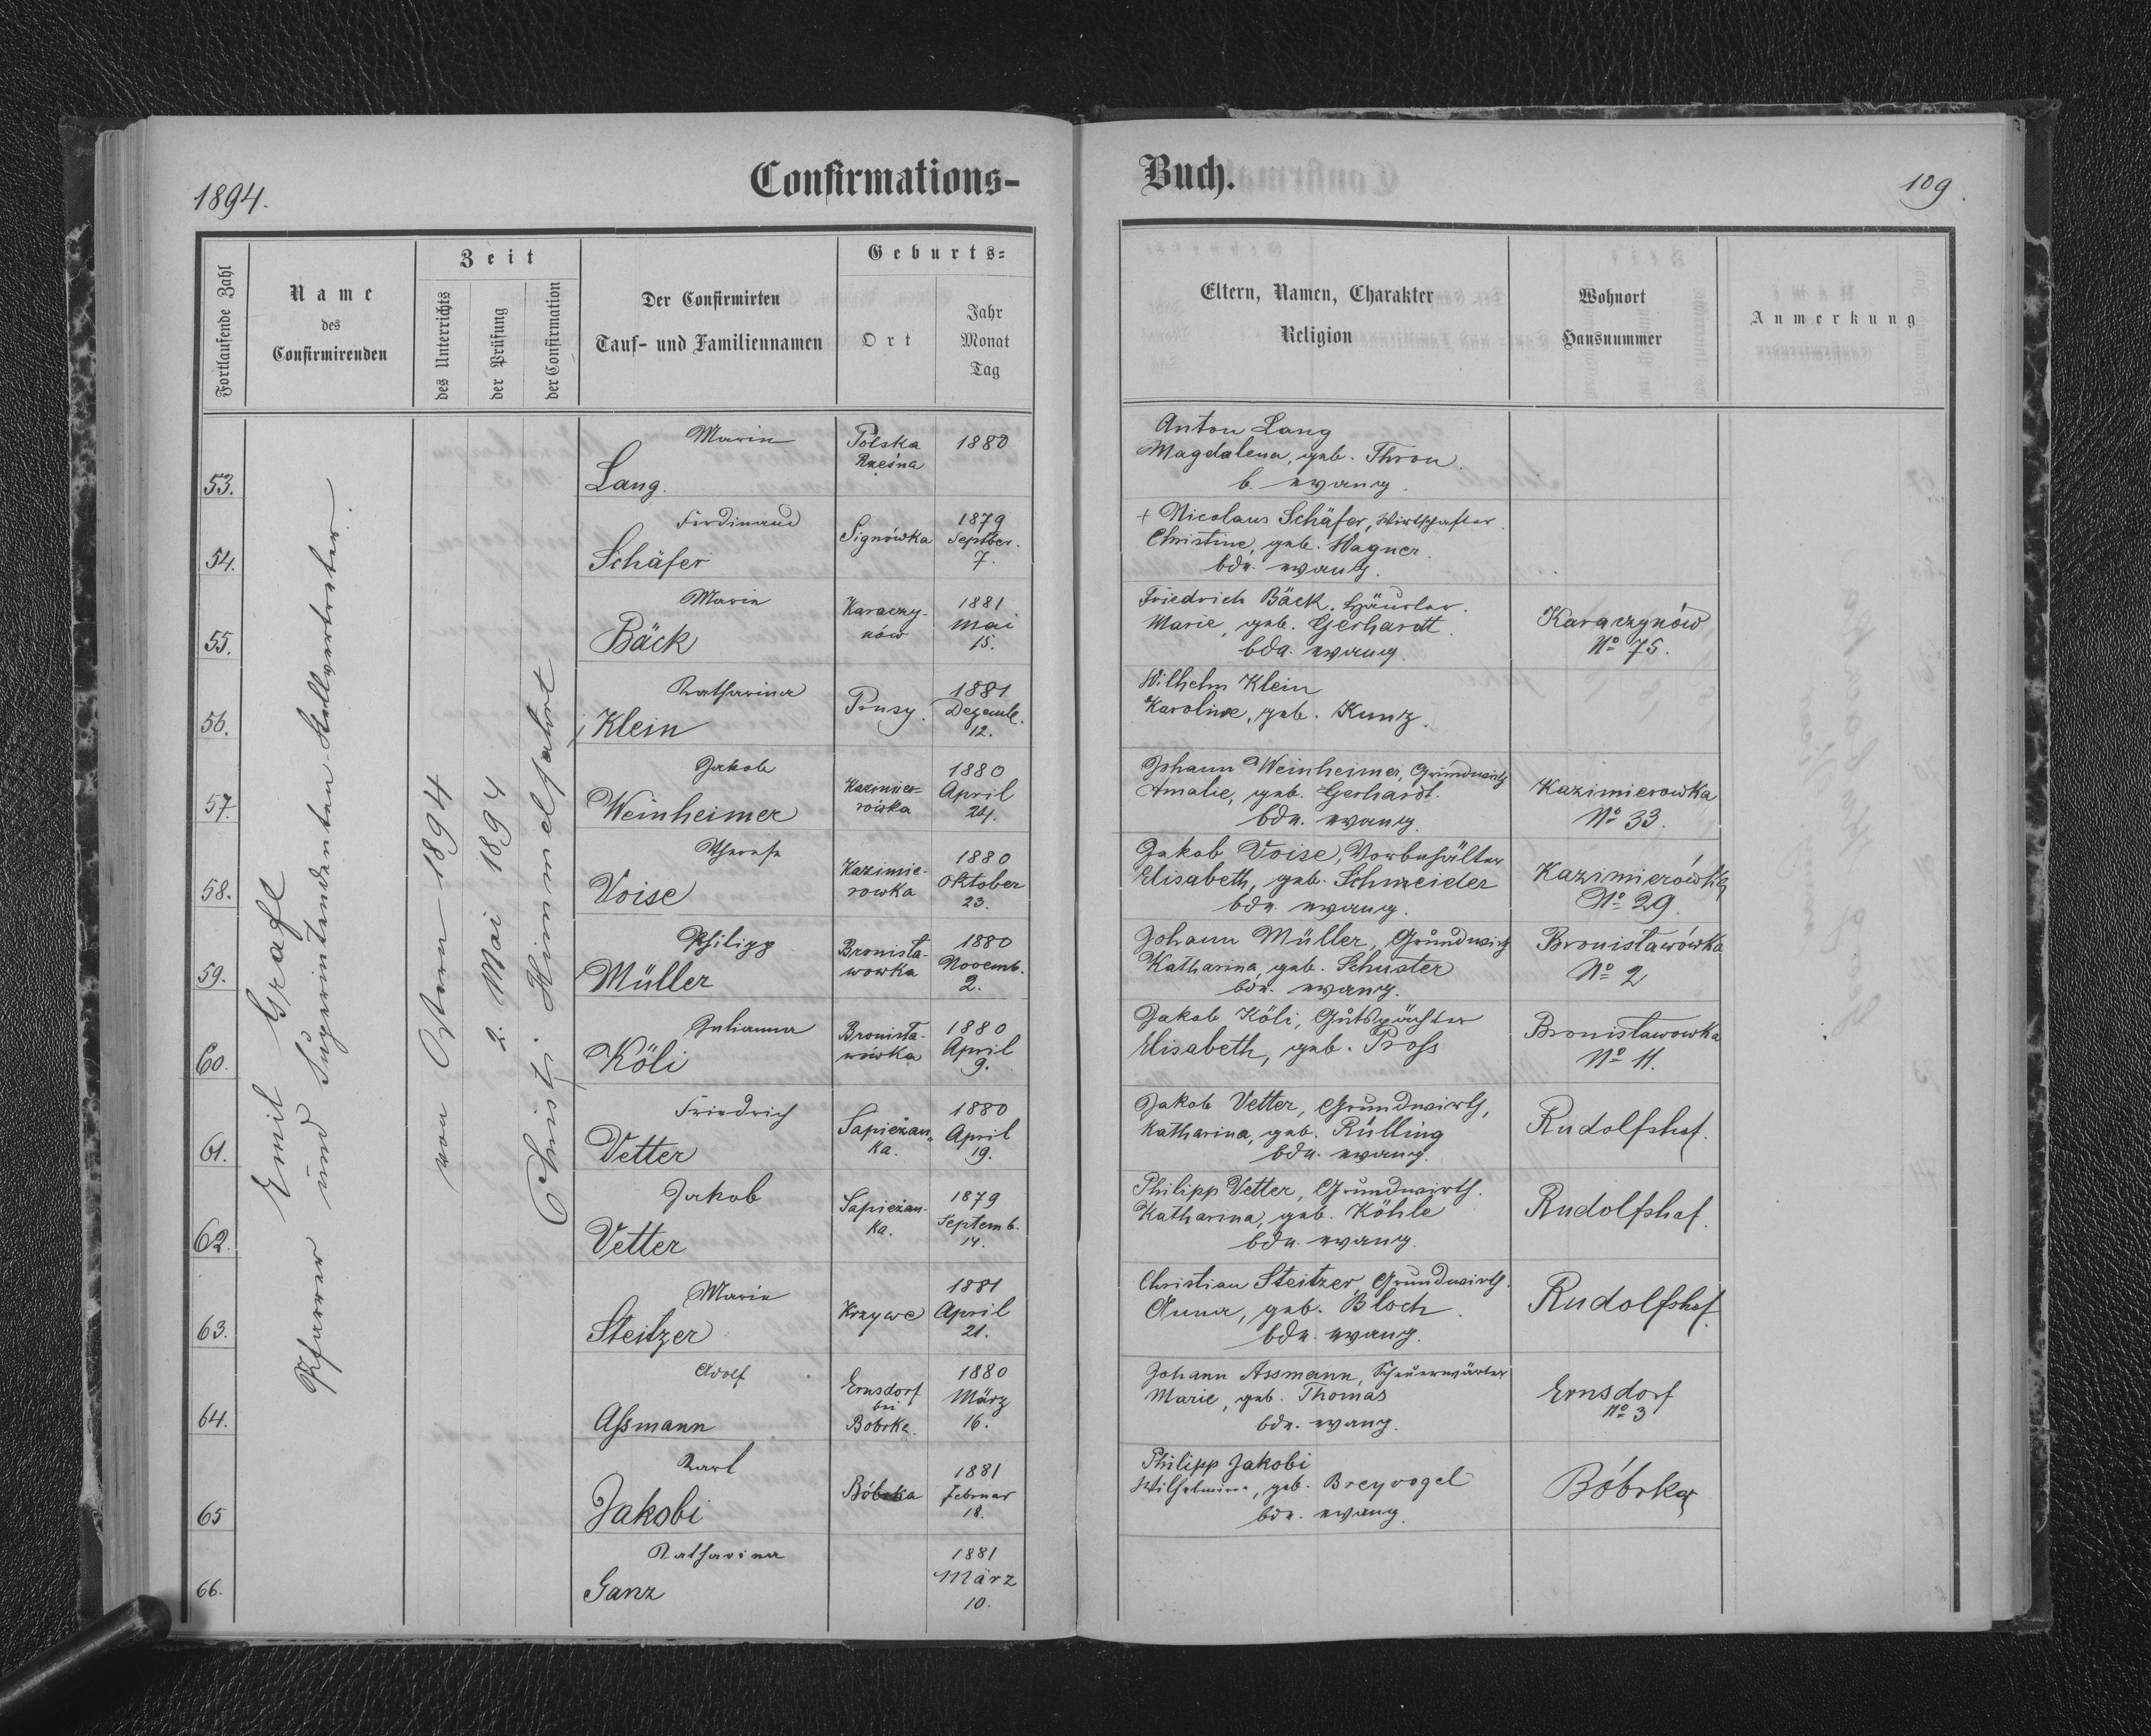 1894.
Confirmations-
Buch.
109.
Fortlaufende Zahl
Name
des
Confirmirenden
Zeit
des Unterrichts
der Prüfung
der Confirmation
Der Confirmirten
Tauf- und Familiennamen
Geburts-
Ort
Jahr
Monat
Tag
Eltern, Namen, Charakter
Religion
Wohnort
Hausnummer
Anmerkung
Emil Grafl
Pfarrer und Superintendenten-Stellvertreter.
von Ostern 1894
2. Mai 1894
Christi Himmelfahrt
53.
Marie
Lang.
Polska
Rzeżna
1880
Anton Lang
Magdalena, geb. Thron.
b. evang.
54.
Ferdinand
Schäfer
Signówka
1879
Septber.
7.
+ Nicolaus Schäfer, Wirtschafter.
Christine, geb. Wagner.
bde. evang.
55.
Marie
Bäck
Karaczy-
nów
1881
Mai
15.
Friedrich Bäck, Häusler.
Marie, geb. Gerhardt
bde. evang.
Karaczynów
No 75.
56.
Katharina
Klein
Prusy.
1881
Dezemb.
12.
Wilhelm Klein
Karoline, geb. Kunz.
57.
Jakob
Weinheimer
Kazimie-
rowka
1880
April
24.
Johann Weinheimer, Grundwirth
Amalie, geb. Gerhardt.
bde. evang.
Kazimierowka
No 33.
58.
Therese
Voise
Kazimie-
rowka
1880
Oktober
23.
Jakob Voise, Vorbehälter
Elisabeth, geb. Schneider
bde. evang.
Kazimierówka
No 29.
59.
Philipp
Müller
Bronisła-
wowka
1880
Novemb.
2.
Johann Müller, Grundwirth
Katharina, geb. Schuster
bde. evang.
Bronisławówka
No 2
60.
Julianna
Köli
Bronisła-
wówka
1880
April
9.
Jakob Köli, Gutspächter
Elisabeth, geb. Pross
Bronisławowka
No 11.
61.
Friedrich
Vetter
Sapieżan-
ka.
1880
April
19.
Jakob Vetter, Grundwirth,
Katharina, geb. Rülling
bde. evang.
Rudolfshof.
62.
Jakob
Vetter
Sapieżan-
ka.
1879
Septemb.
14.
Philipp Vetter, Grundwirth.
Katharina, geb. Köhle
bde. evang.
Rudolfshof.
63.
Marie
Steitzer
Krzywe
1881
April
21.
Christian Steitzer, Grundwirth.
Anna, geb. Bloch.
bde. evang.
Rudolfshof.
64.
Adolf
Assmann
Ernsdorf
bei
Bobrka.
1880
März
16.
Johann Assmann,
Marie, geb. Thomas
bde. evang.
Ernsdorf
No 3
65
Karl
Jakobi
Bóbrka
1881
Februar
18.
Philipp Jakobi
Wilhelmine, geb. Breyvogel
bde. evang.
Bóbrka
66.
Katharina
Ganz
1881
März
10.